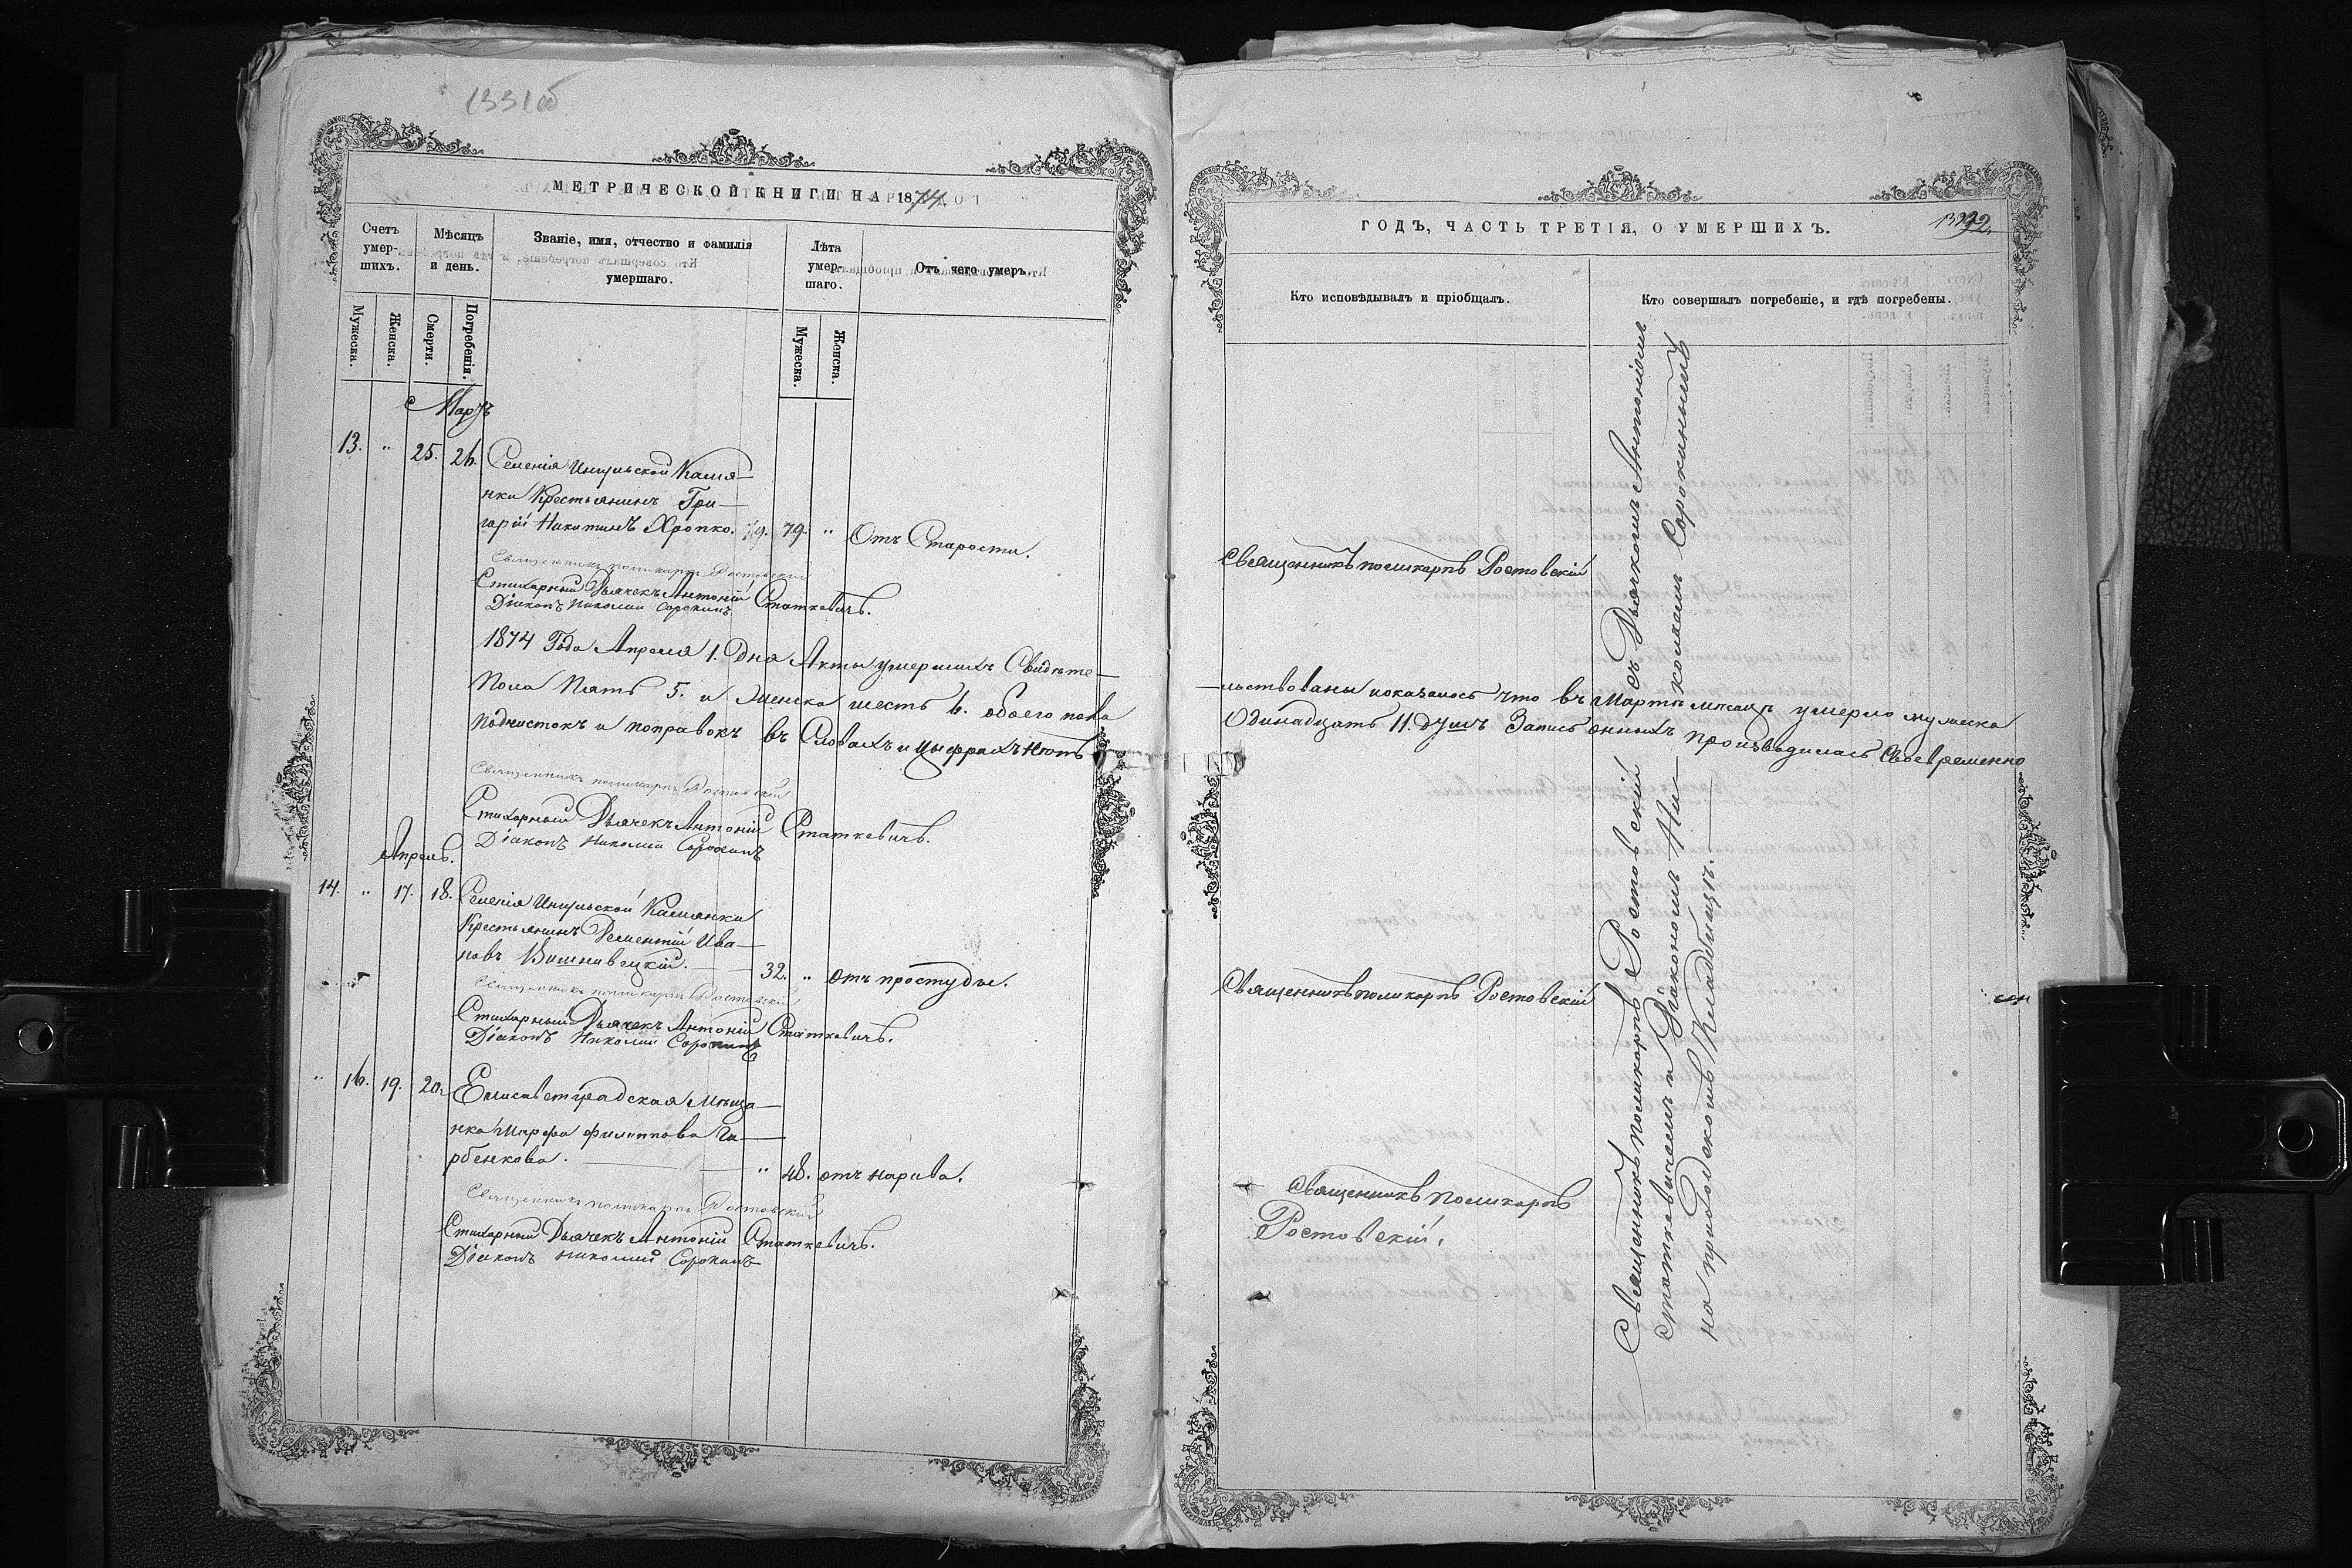 1331об
МЕТРИЧЕСКОЙ КНИГИ НА 1874
Счетъ умер-шихъ.
Мѣсяцъ и день.
Званіе, имя, отчество и фамилія умершаго.
Лѣта умер-шаго.
Отъ чего умеръ.
Мужеска.
Женска.
Смерти.
Погребенія.
Мужеска.
Женска.
Мартъ
13. " 25. 26. Селенія Ингульской Камя-
нки Крестьянинъ Гри-
горій Никитинъ Хропко. 79. 79. " Отъ Старости.
Священникъ поликарпъ Ростовскій
Стихарный Дьячекъ Антоній Статкевичъ.
Діаконъ Николай Сорокинъ
1874 Года Апреля 1. Дня Акты умершихъ Свидѣте-
Пола Пять 5. и Женска шесть 6. обоего пола
подчистокъ и поправокъ въ Словахъ и цыфрахъ нѣтъ
Священникъ поликарпъ Ростовскій
Стихарный Дьячекъ Антоній Статкевичъ.
Діаконъ Николай Сорокинъ
Апрель.
14. " 17. 18. Селенія Ингульской Камянки
Крестьянинъ Дементій Ива-
новъ Вишнивецкій. 32. " отъ простуды.
Священникъ поликарпъ Ростовскій
Стихарный Дьячекъ Антоній Статкевичъ.
Діаконъ Николай Сорокинъ
" 16. 19. 20. Елисаветградская Мѣща-
нка Марфа филиппова Га-
рбенкова. " 48. отъ нарива.
Священникъ поликарпъ Ростовскій
Стихарный Дьячекъ Антоній Статкевичъ.
Діаконъ Николай Сорокинъ
ГОДЪ, ЧАСТЬ ТРЕТІЯ, О УМЕРШИХЪ.
Кто исповѣдывалъ и пріобщалъ.
Кто совершалъ погребеніе, и гдѣ погребены.
Священникъ поликарпъ Ростовскій
-льствованы показалось что въ Мартѣ мѣсяцѣ умерло мужеска
Одинадцать 11. душъ Запись оныхъ производилась Своевременно
Священникъ поликарпъ Ростовскій
Священникъ поликарпъ
Ростовскій,
Священникъ поликарпъ Ростовскій съ Дьячкомъ Антоніемъ
Статкевичемъ и Діакономъ Ни-колаемъ Сорокинымъ
на приходскомъ Кладбищѣ.